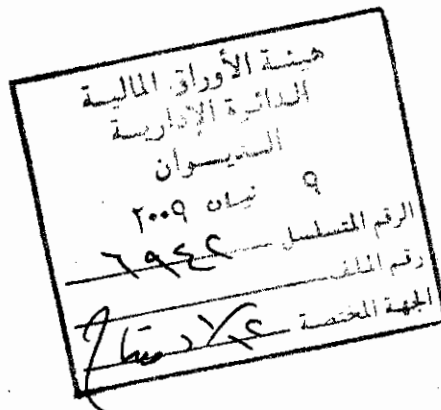 هيئة الأوراق المالية
الدائرة الإدارية
الديوان
٩ نيسان ٢٠٠٩
الرقم المتسلسل ٦٩٤٢
رقم الملف
الجهة المختصة